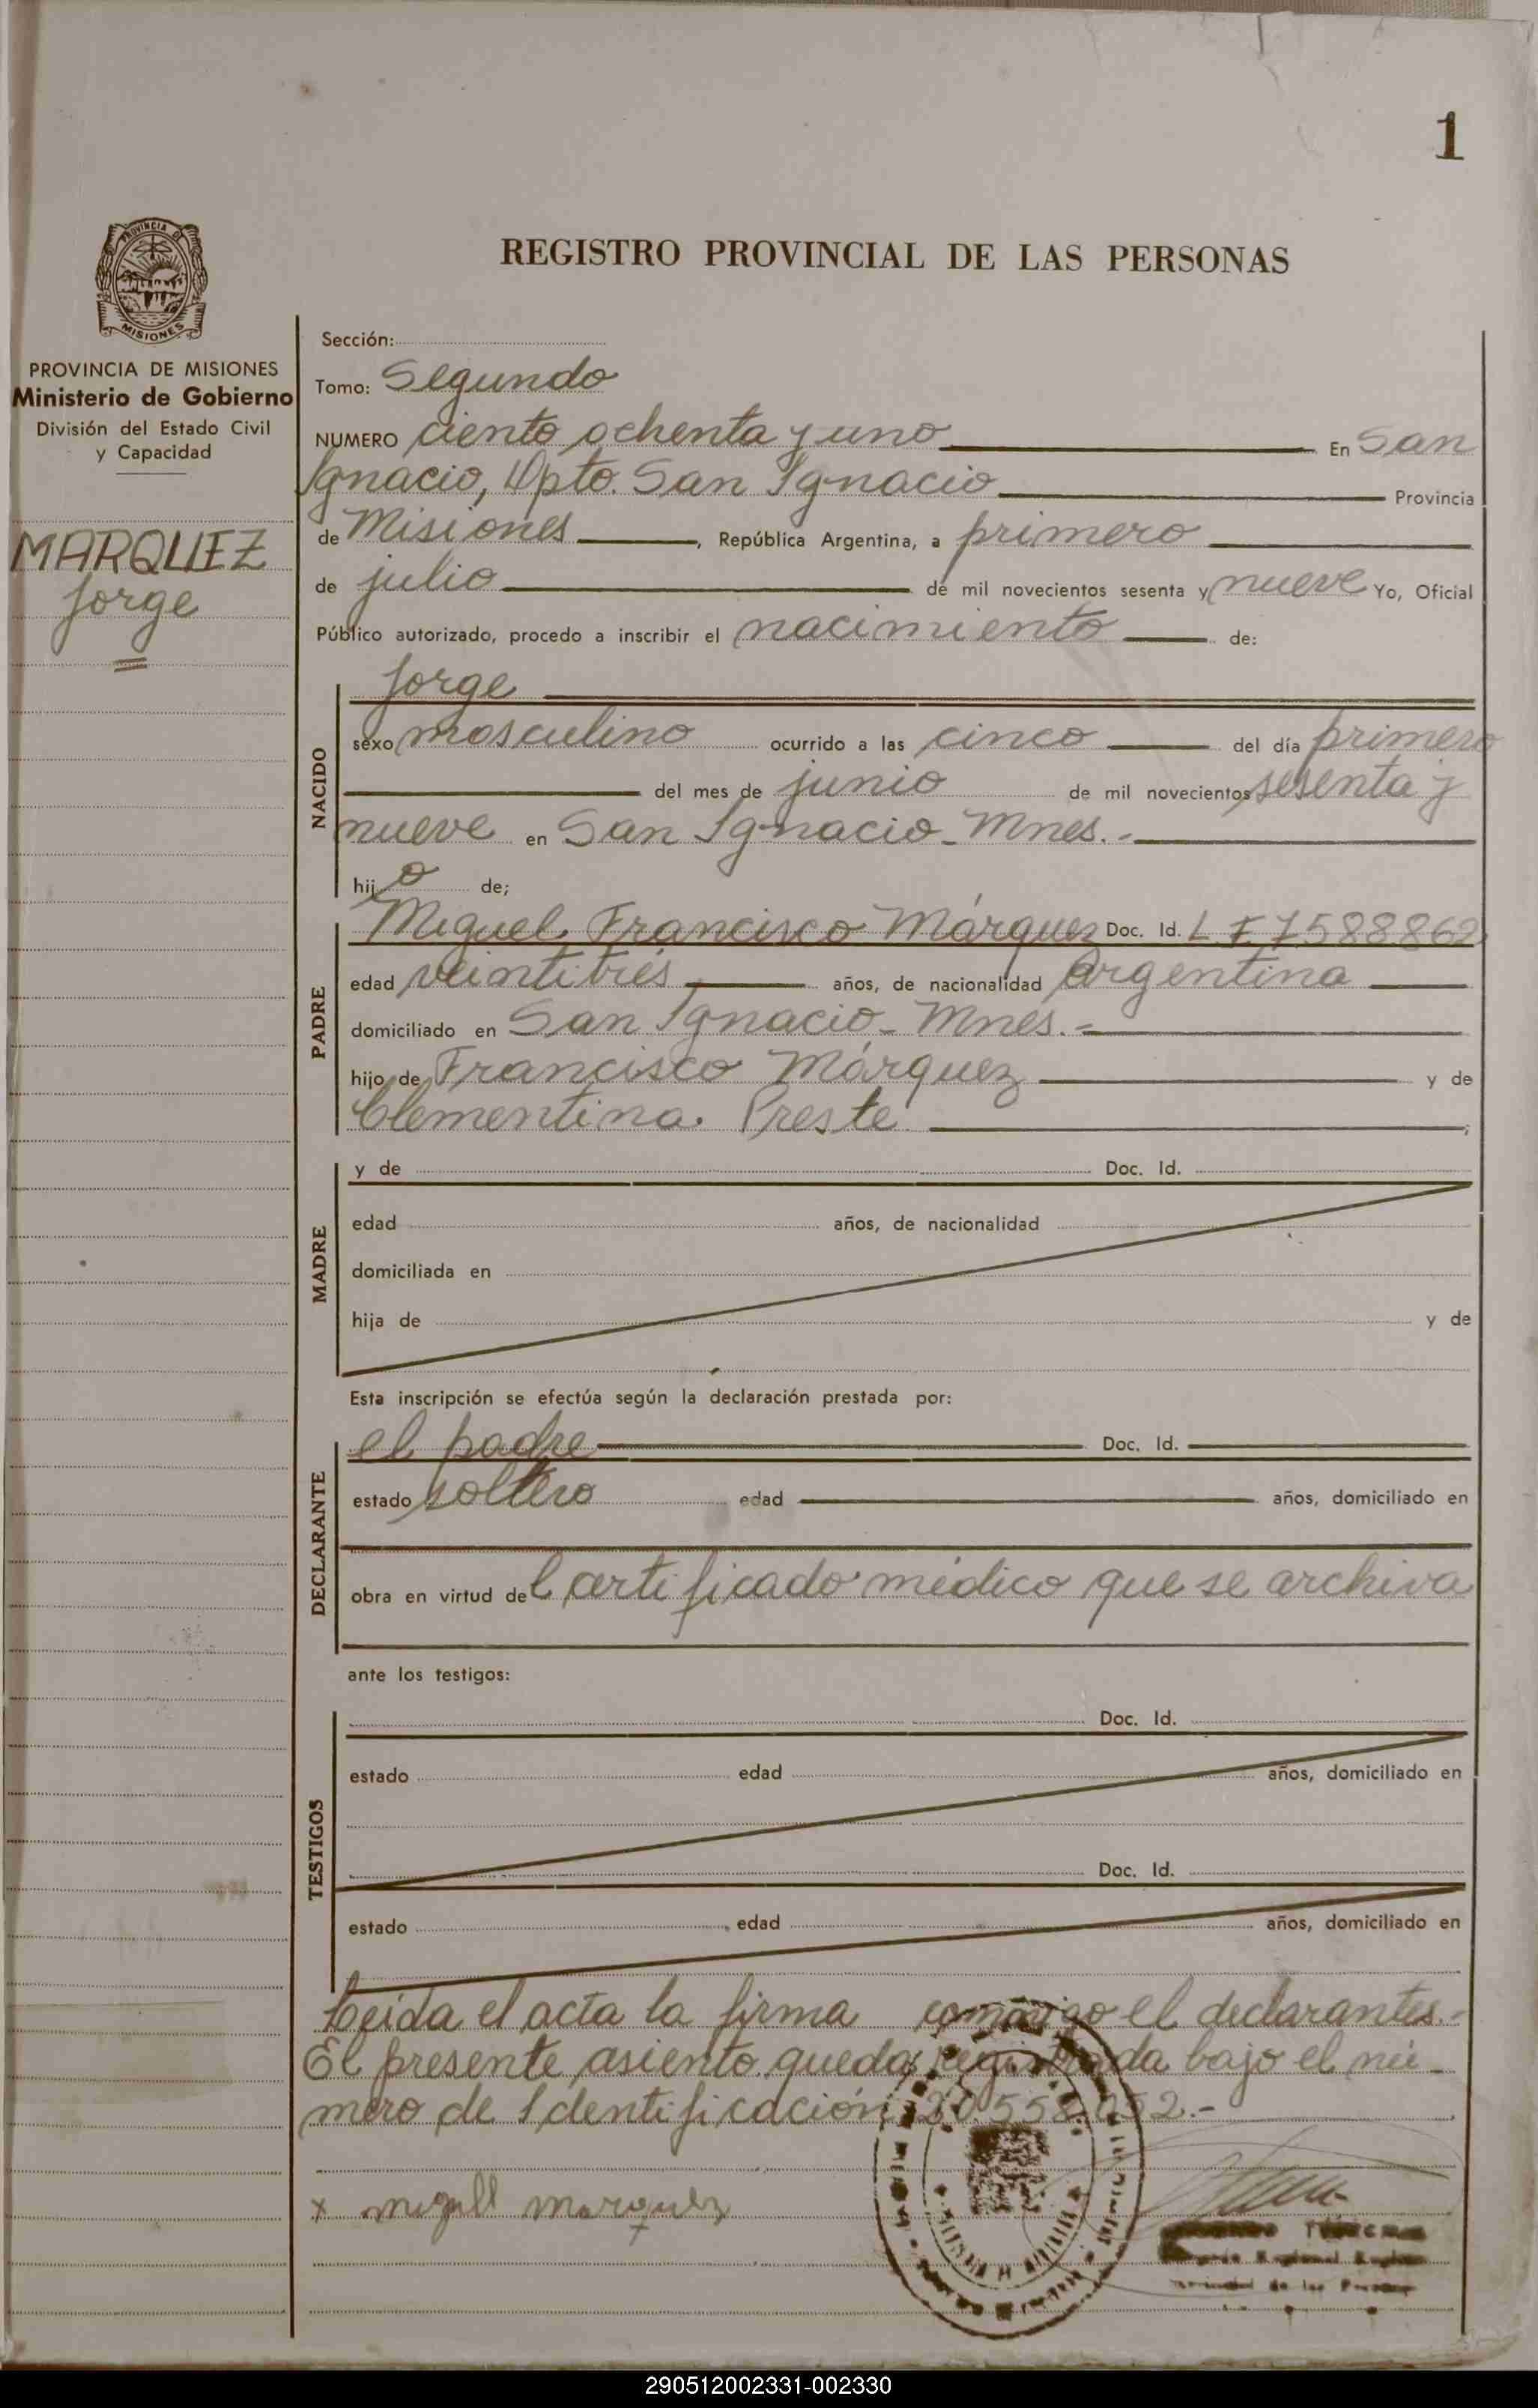 1
PROVINCIA DE
MISIONES
REGISTRO PROVINCIAL DE LAS PERSONAS
PROVINCIA DE MISIONES
Ministerio de Gobierno
División del Estado Civil
y Capacidad
MARQUEZ
Jorge
Sección:
Tomo: Segundo
NUMERO ciento ochenta y uno En San
Ignacio, Dpto. San Ignacio Provincia
de Misiones, República Argentina, a primero
de julio de mil novecientos sesenta y nueve Yo, Oficial
Público autorizado, procedo a inscribir el nacimiento de:
NACIDO
Jorge
sexo masculino ocurrido a las cinco del día primero
del mes de junio de mil novecientos sesenta y
nueve en San Ignacio - Mnes.-
hijo de;
PADRE
Miguel Francisco Márquez Doc. Id. L E 7588862
edad veintitrés años, de nacionalidad Argentina
domiciliado en San Ignacio - Mnes.-
hijo de Francisco Márquez y de
Clementina Preste ;
MADRE
y de Doc. Id.
edad años, de nacionalidad
domiciliada en
hija de y de
Esta inscripción se efectúa según la declaración prestada por:
DECLARANTE
el padre Doc. Id.
estado soltero edad años, domiciliado en
obra en virtud del certificado médico que se archiva
ante los testigos:
TESTIGOS
Doc. Id.
estado edad años, domiciliado en
Doc. Id.
estado edad años, domiciliado en
Leída el acta la firma conmigo el declarantes.-
El presente asiento queda registrada bajo el nú-
mero de Identificación
x migull marquez
de las Personas
290512002331-002330